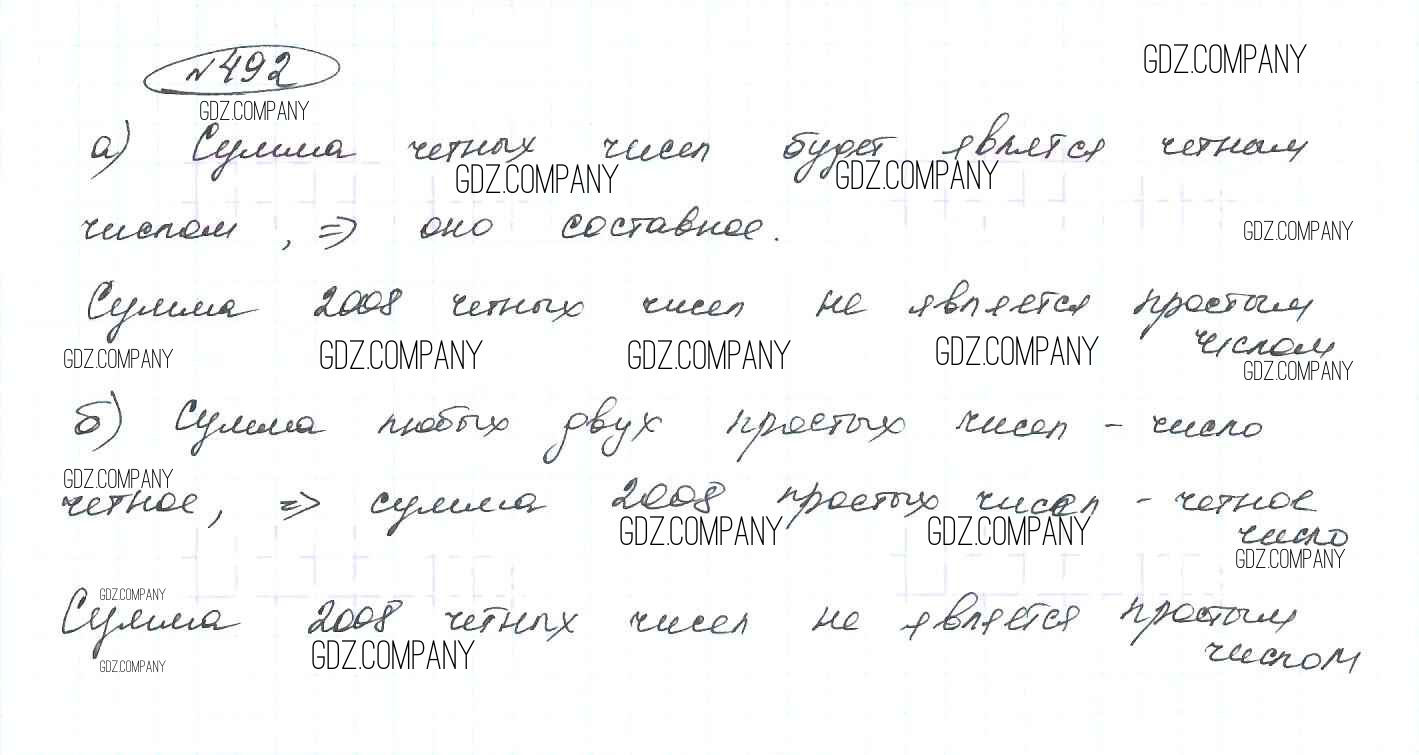 №492
GDZ.COMPANY
GDZ.COMPANY
а) Сумма четных чисел будет является четным
GDZ.COMPANY GDZ.COMPANY
числом, => оно составное.
GDZ.COMPANY
Сумма 2008 четных чисел не является простым
числом
GDZ.COMPANY GDZ.COMPANY GDZ.COMPANY GDZ.COMPANY
GDZ.COMPANY
б) Сумма любых двух простых чисел - число
GDZ.COMPANY
четное, => сумма 2008 простых чисел - четное
число
GDZ.COMPANY GDZ.COMPANY
GDZ.COMPANY
GDZ.COMPANY
Сумма 2008 четных чисел не является простым
числом
GDZ.COMPANY
GDZ.COMPANY